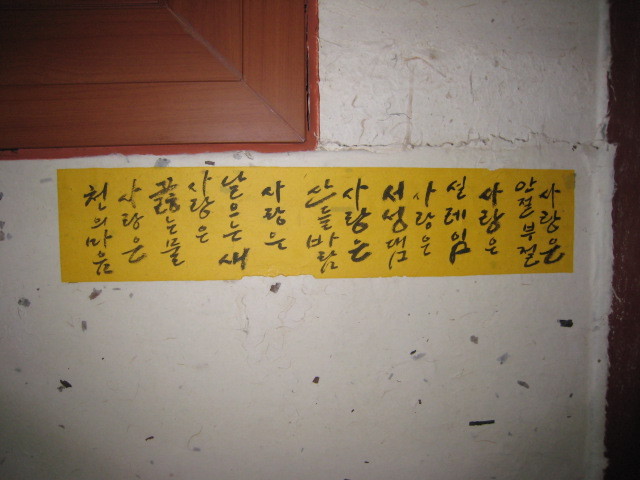 사랑은
안절부절
사랑은
설레임
사랑은
서성댐
사랑은
산들바람
사랑은
날으는새
사랑은
끓는물
사랑은
천의마음